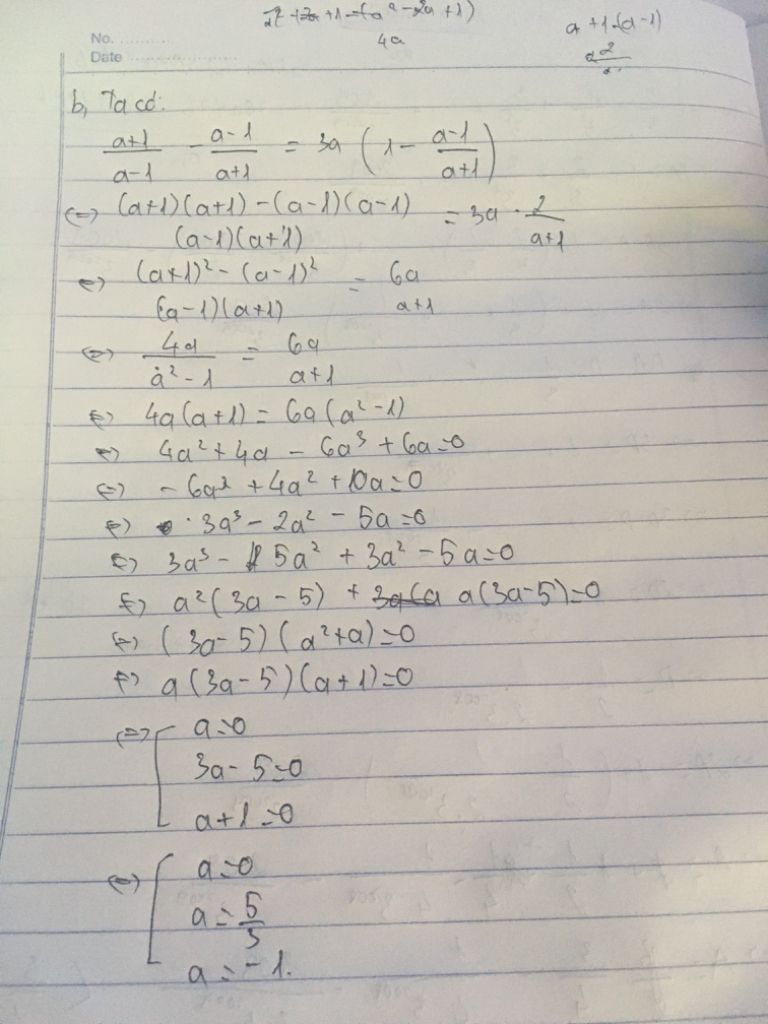 +1-(a²-2a+1)
4a
a+1-(a-1)
No.
Date
b, Ta có:
\frac{a+1}{a-1} - \frac{a-1}{a+1} = 3a (1 - \frac{a-1}{a+1})
(=) \frac{(a+1)(a+1)-(a-1)(a-1)}{(a-1)(a+1)} = 3a . \frac{2}{a+1}
(=) \frac{(a+1)²-(a-1)²}{(a-1)(a+1)} = \frac{6a}{a+1}
(=) \frac{4a}{a²-1} = \frac{6a}{a+1}
(=) 4a(a+1) = 6a(a²-1)
(=) 4a²+4a - 6a³ + 6a=0
(=) - 6a³ + 4a² + 10a=0
(=) 3a³ - 2a² - 5a=0
(=) 3a³ - 5a² + 3a² - 5a=0
(=) a²(3a - 5) + a(3a-5)=0
(=) (3a-5)(a²+a)=0
(=) a(3a-5)(a+1)=0
(=) [ a=0
3a-5=0
a+1=0
(=) [ a=0
a = \frac{5}{3}
a = -1.